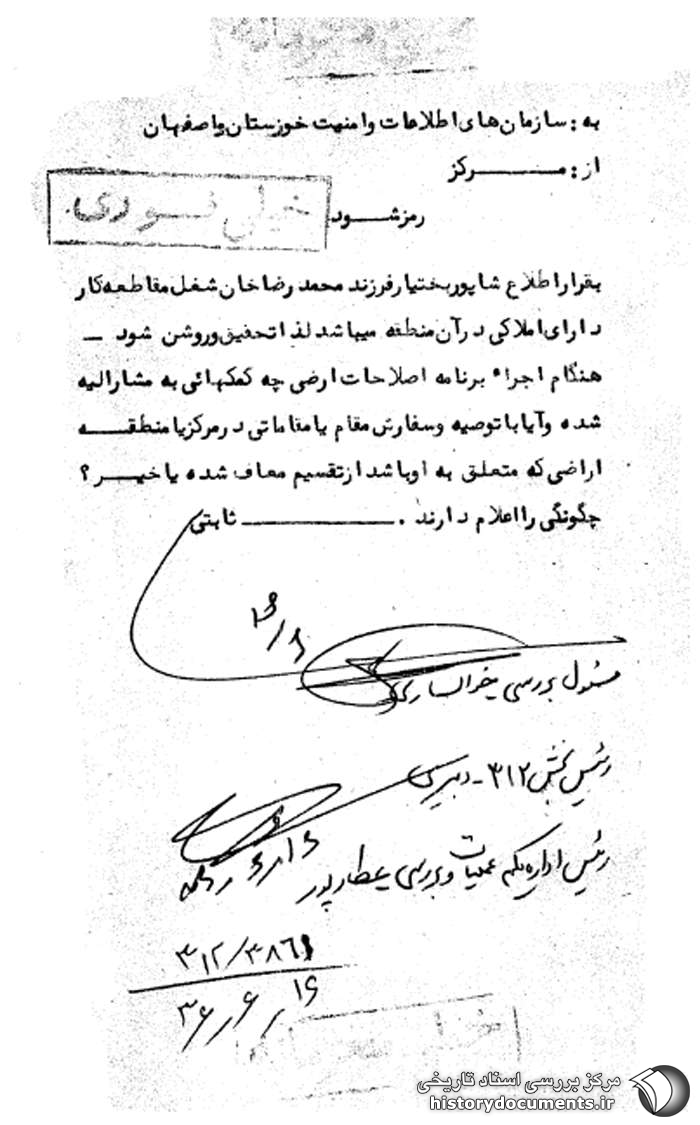 به : سازمان های اطلاعات وامنیت خوزستان واصفهان
از : مرکز
خیلی فوری
رمز شود
بقرار اطلاع شاپور بختیار فرزند محمد رضا خان شغل مقاطعه کار
دارای املاکی در آن منطقه میباشد لذا تحقیق وروشن شود –
هنگام اجراء برنامه اصلاحات ارضی چه کمکهائی به مشارالیه
شده وآیا با توصیه وسفارش مقام یا مقاماتی در مرکز یا منطقه
اراضی که متعلق به اوباشد از تقسیم معاف شده یا خیر ؟
چگونگی را اعلام دارند . ثابتی
مسئول بررسی خوانساری
رئیس بخش ۳۱۲ - دبیری
رئیس اداره یکم عملیات و بررسی عطارپور
۳۱۲/۳۸۶۱
۱۶ ر ۶ ر ۳۶
خیلی
مرکز بررسی اسناد تاریخی
historydocuments.ir